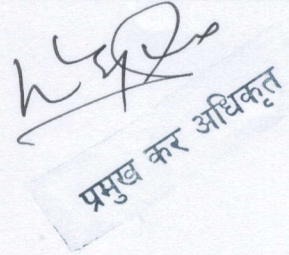 प्रमुख कर अधिकृत